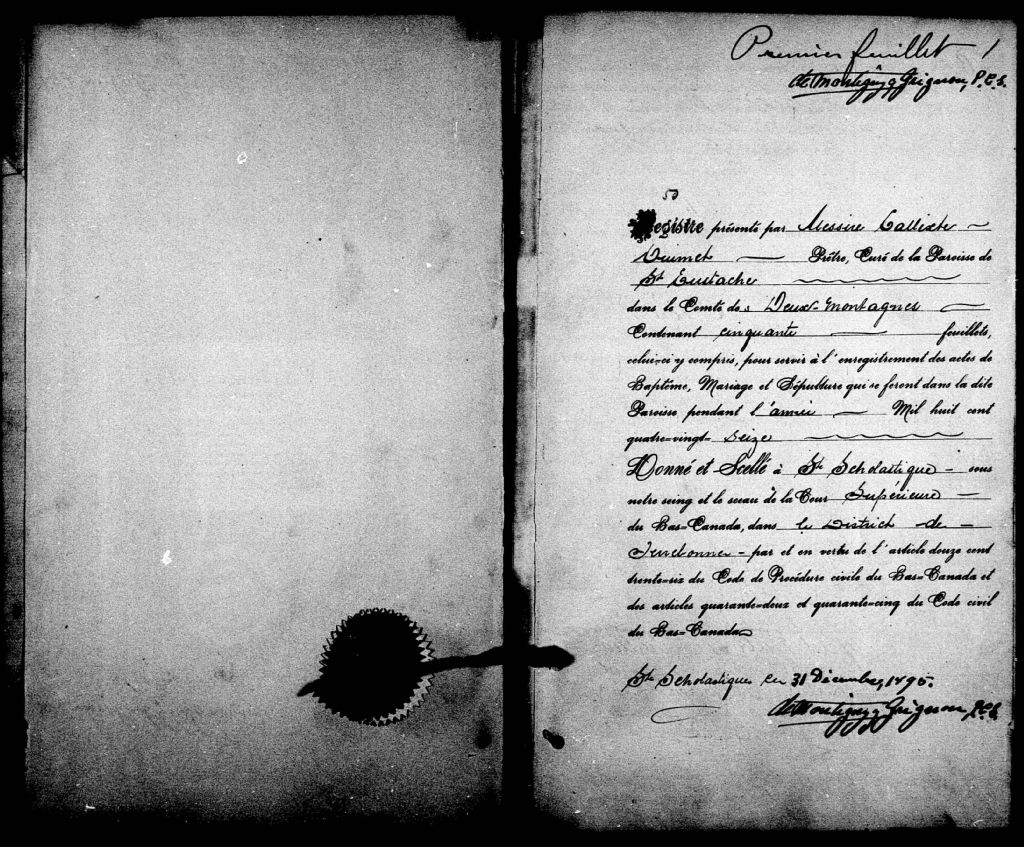 Premier feuillet 1
de Montigny & Grignon, P.C.S.
50
Registre présenté par Messire Callixte
Ouimet Prêtre, Curé de la Paroisse de
St Eustache
dans le Comté des Deux-Montagnes
Contenant cinquante feuillets,
celui-ci y compris, pour servir à l'enregistrement des actes de
Baptême, Mariage et Sépulture qui se feront dans la dite
Paroisse pendant l'année Mil huit cent
quatre-vingt-seize
Donné et Scellé à Ste Scholastique - sous
notre seing et le sceau de la Cour Supérieure -
du Bas-Canada, dans le District de -
Terrebonne - par et en vertu de l'article douze cent
trente-six du Code de Procédure civile du Bas-Canada et
des articles quarante-deux et quarante-cinq du Code civil
du Bas-Canada
Ste Scholastique ce 31 Décembre, 1895.
de Montigny & Grignon, P.C.S.